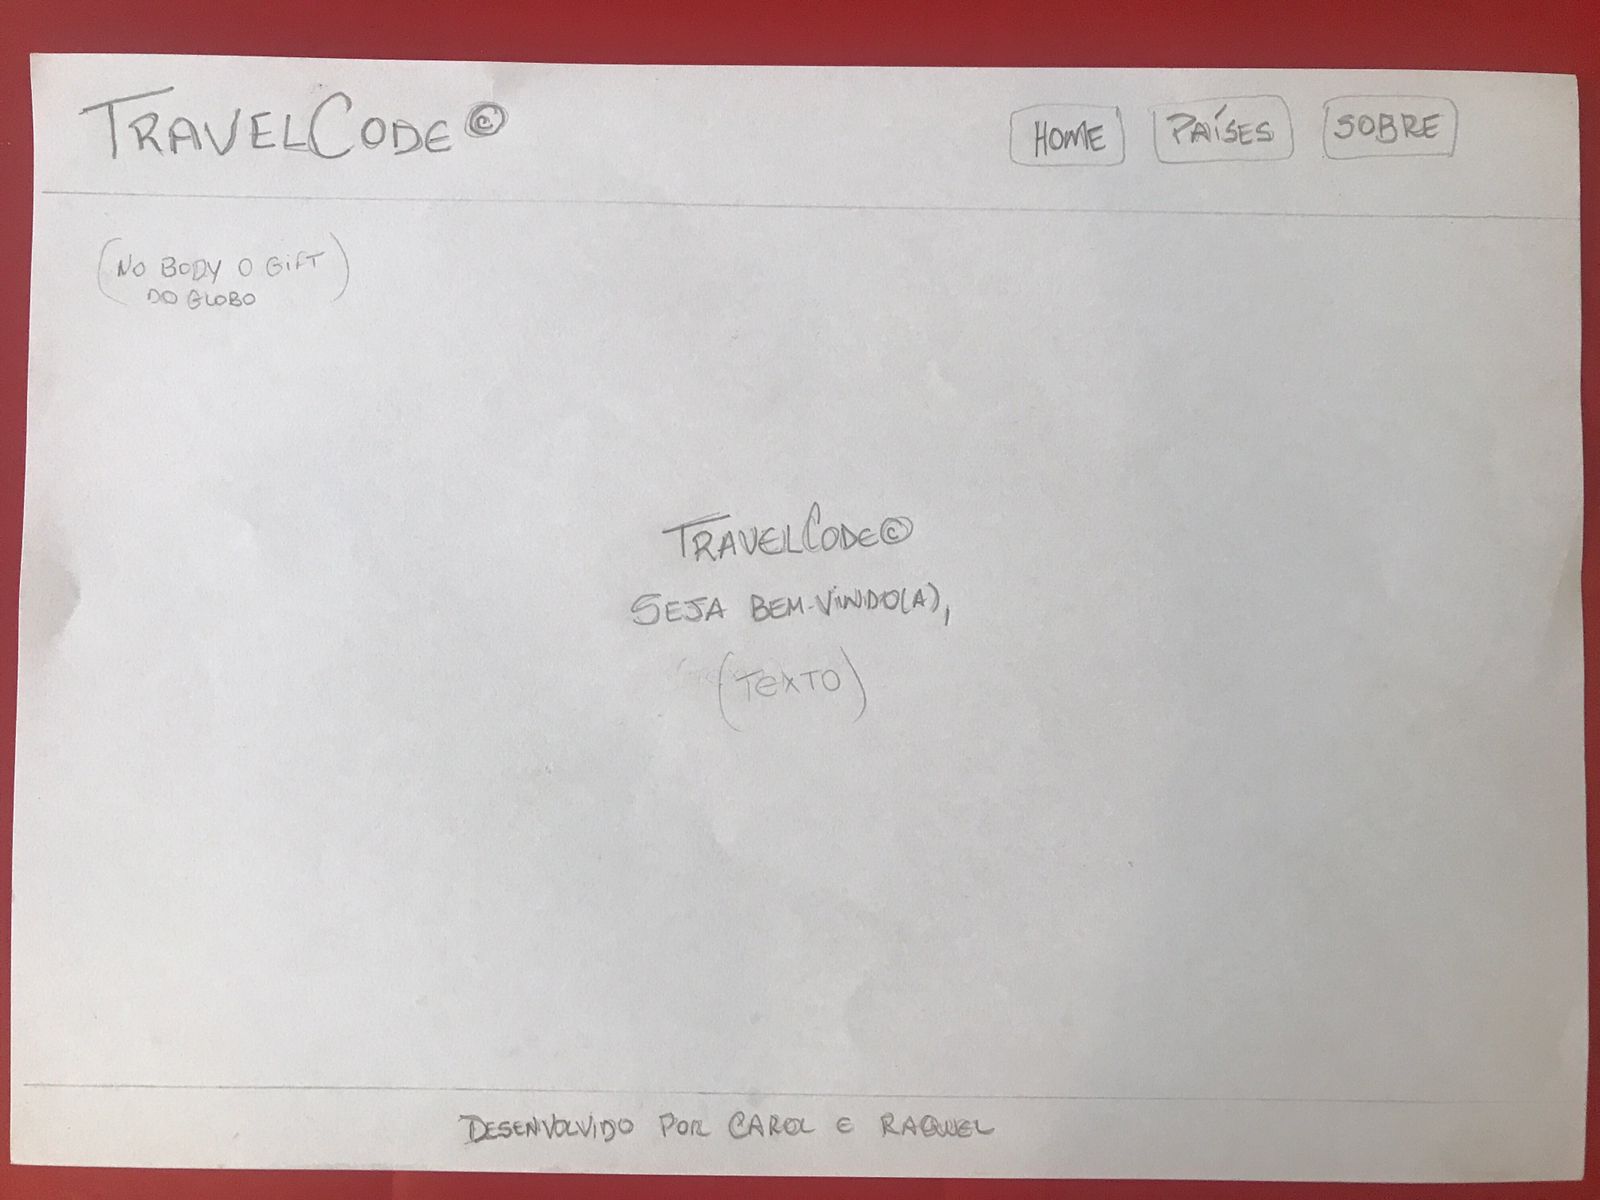 TRAVELCODE©
HOME PAÍSES SOBRE
(NO BODY O GIFT
DO GLOBO)
TRAVELCODE©
SEJA BEM-VINDO(A),
(TEXTO)
DESENVOLVIDO POR CAROL E RAQUEL